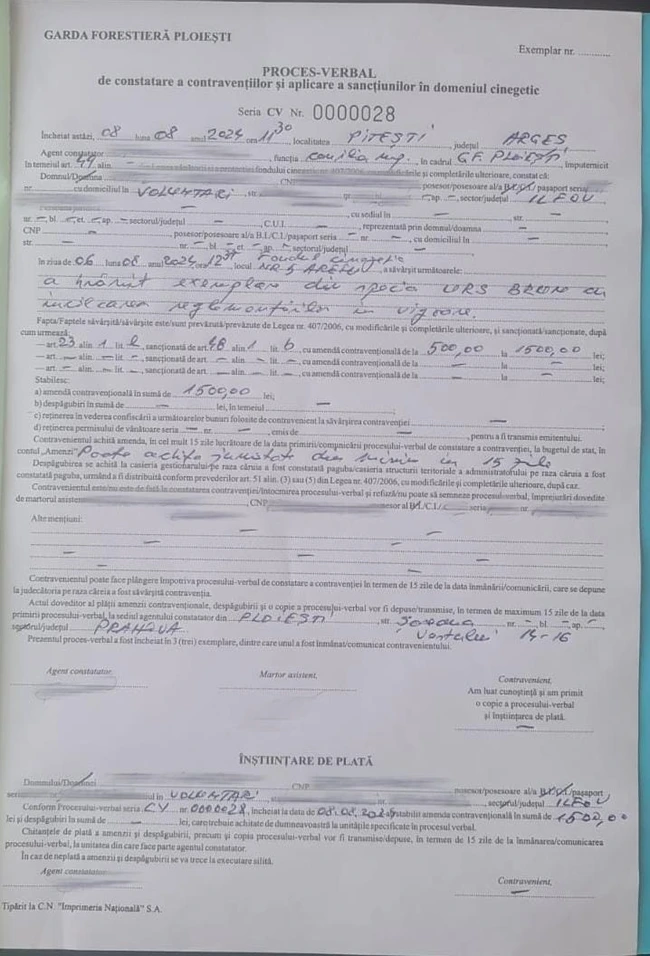 GARDA FORESTIERĂ PLOIEȘTI
Exemplar nr. ............
PROCES-VERBAL
de constatare a contravențiilor și aplicare a sancțiunilor în domeniul cinegetic
Seria CV Nr. 0000028
Încheiat astăzi, 08 luna 08 anul 2024 ora 11 30 localitatea PITEȘTI, județul ARGEȘ
Agent constatator, funcția consilier sup., în cadrul G.F. PLOIEȘTI, împuternicit
în temeiul art. 49 alin. – fondului cinegetic 407/2006, cu modificările și completările ulterioare, constat că:
Domnul/Doamna CNP posesor/posesoare al/a B.I./C.I./pașaport seria
nr. cu domiciliul în VOLUNTARI, str. ap. – sector/județul ILFOV
–, cu sediul în –, str. –
nr. – bl. – et. – ap. – sectorul/județul –, C.U.I. –, reprezentată prin domnul/doamna –
CNP –, posesor/posesoare al/a B.I./C.I./pașaport seria – nr. –, cu domiciliul în –
str. – nr. – bl. – et. – ap. – sectorul/județul –
În ziua de 06 luna 08 anul 2024 ora 12 local. Fondul cinegetic NR 5, a săvârșit următoarele:
a hrănit exemplare din specia URS BRUN cu
încălcarea reglementărilor în vigoare.
Fapta/Faptele săvârșită/săvârșite este/sunt prevăzută/prevăzute de Legea nr. 407/2006, cu modificările și completările ulterioare, și sancționată/sancționate, după
cum urmează:
– art. 23 alin. 1 lit. l, sancționată de art. 48 alin. 1 lit. b, cu amendă contravențională de la 500,00 la 1500,00 lei;
– art. – alin. – lit. –, sancționată de art. – alin. – lit. –, cu amendă contravențională de la – la – lei;
– art. – alin. – lit. –, sancționată de art. – alin. – lit. –, cu amendă contravențională de la – la – lei;
Stabilesc:
a) amendă contravențională în sumă de 1500,00 lei;
b) despăgubiri în sumă de – lei, în temeiul –;
c) reținerea în vederea confiscării a următoarelor bunuri folosite de contravenient la săvârșirea contravenției –;
d) reținerea permisului de vânătoare seria – nr. –, emis de –, pentru a fi transmis emitentului.
Contravenientul achită amenda, în cel mult 15 zile lucrătoare de la data primirii/comunicării procesului-verbal de constatare a contravenției, la bugetul de stat, în
contul „Amenzi" Poate achita jumătate din minim în 15 zile
Despăgubirea se achită la casieria gestionarului/pe raza căruia a fost constatată paguba/casieria structurii teritoriale a administratorului pe raza căruia a fost
constatată paguba, urmând a fi distribuită conform prevederilor art. 51 alin. (3) sau (5) din Legea nr. 407/2006, cu modificările și completările ulterioare, după caz.
Contravenientul este/nu este de față la constatarea contravenției/întocmirea procesului-verbal și refuză/nu poate să semneze procesul-verbal, împrejurări dovedite
de martorul asistent, CNP posesor al B.I./C.I./ seria nr.
Alte mențiuni: –
– –
– –
– –
Contravenientul poate face plângere împotriva procesului-verbal de constatare a contravenției în termen de 15 zile de la data înmânării/comunicării, care se depune
la judecătoria pe raza căreia a fost săvârșită contravenția.
Actul doveditor al plății amenzii contravenționale, despăgubirii și o copie a procesului-verbal vor fi depuse/transmise, în termen de maximum 15 zile de la data
primirii procesului-verbal, la sediul agentului constatator din PLOIEȘTI, str. Șoseaua Vestului nr. 14-16 bl. – ap. –
sectorul/județul PRAHOVA
Prezentul proces-verbal a fost încheiat în 3 (trei) exemplare, dintre care unul a fost înmânat/comunicat contravenientului.
Agent constatator,
Martor asistent,
Contravenient,
Am luat cunoștință și am primit
o copie a procesului-verbal
și înștiințarea de plată.
–
ÎNȘTIINȚARE DE PLATĂ
Domnului/Doamnei CNP posesor/posesoare al/a B.I./C.I./pașaport
seria în VOLUNTARI, sectorul/județul ILFOV
Conform Procesului-verbal seria CV nr. 0000028, încheiat la data de 08.08.2024 s-a stabilit amenda contravențională în sumă de 1500,00
lei și despăgubiri în sumă de – lei, care trebuie achitate de dumneavoastră la unitățile specificate în procesul verbal.
Chitanțele de plată a amenzii și despăgubirii, precum și copia procesului-verbal vor fi transmise/depuse, în termen de 15 zile de la înmânarea/comunicarea
procesului-verbal, la unitatea din care face parte agentul constatator.
În caz de neplată a amenzii și despăgubirii se va trece la executare silită.
Agent constatator
Contravenient,
–
Tipărit la C.N. "Imprimeria Națională" S.A.